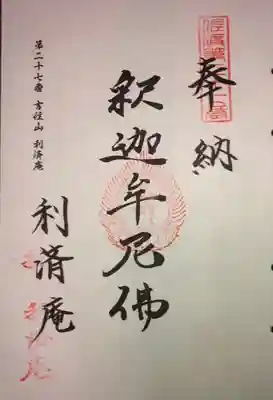 奉納
釈迦牟尼佛
利済庵
第二十七番 吉径山 利済庵